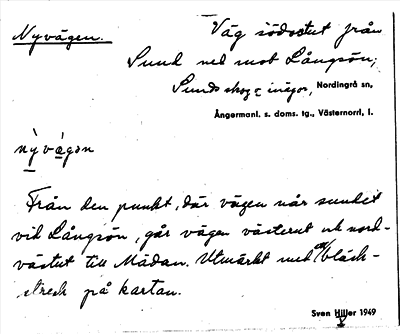 Nyvägen.
Väg södostut från
Sund ned mot Långsön,
Sunds skog: inägor, Nordingrå sn,
Ångermanl. s. doms. tg., Västernorrl. l.
nỳvágon
Från den punkt, där vägen når sundet
vid Långsön, går vägen västerut och nord-
västut till Mädan. Utmärkt med bläck-
streck på kartan.
Sven Hiller 1949